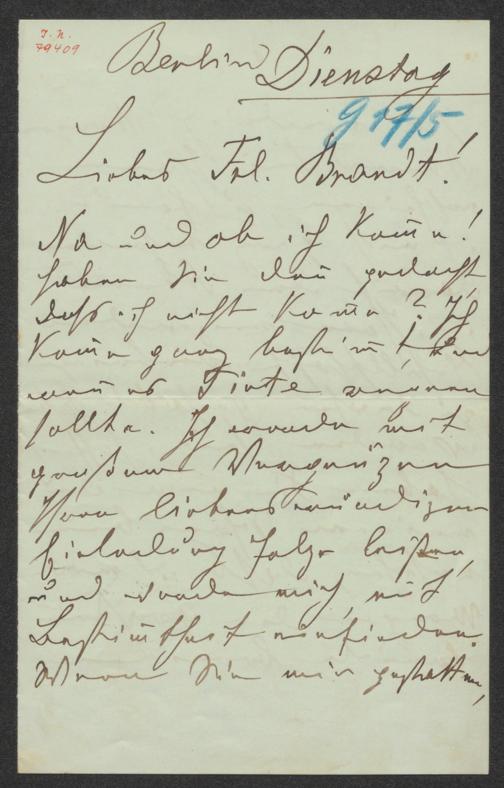 J. N.
79409
Berlin Dienstag
g 17/5
Liebes Frl. Brandt!
Na und ob ich kom̄e!
haben Sie den̄ gedacht
daß ich nicht kom̄e? Ich
kom̄e ganz bestim̄t, und
wen̄ es Tinte regnen
sollte. Ich werde mit
großem Vergnügen
Ihrer liebenswürdigen
Einladung Folge leisten,
und werde mich mit
Bestim̄theit einfinden.
Wenn Sie mir gestatten,